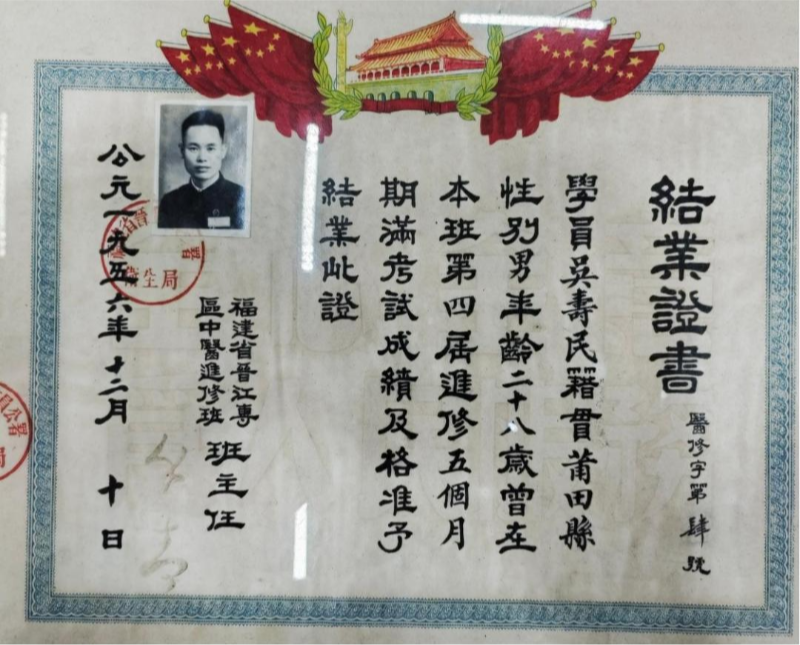 結業證書
醫修字第肆號
學員吳壽民籍貫莆田縣
性別男年齡二十八歲曾在
本班第四届進修五個月
期滿考試成績及格准予
結業此證
福建省晉江專
區中醫進修班
班主任
公元一九五六年十二月十日
省晉
署
衛生局
員公署
局